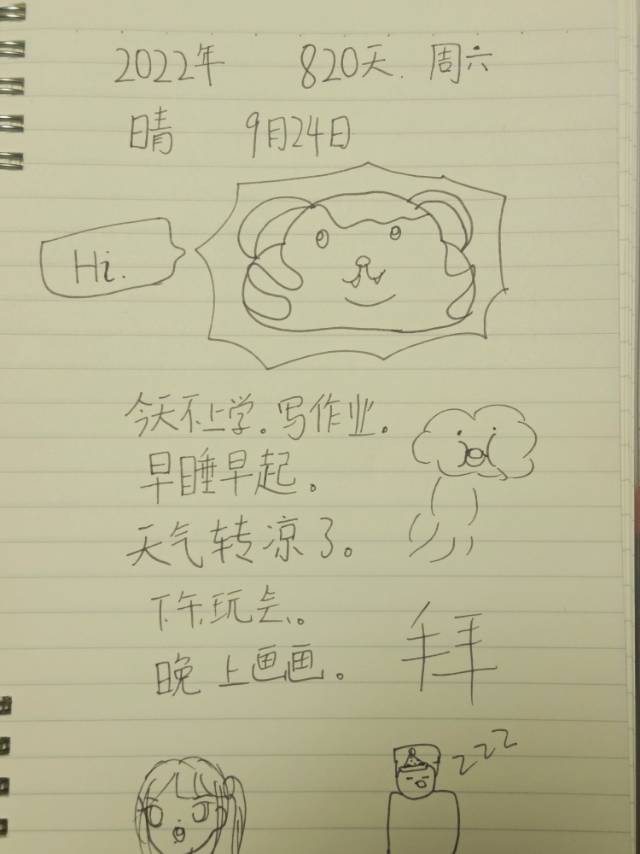 2022年 820天. 周六
晴 9月24日
Hi.
今天不上学。写作业。
早睡早起。
天气转凉了。
下午玩会。
晚上画画。
拜
zzz